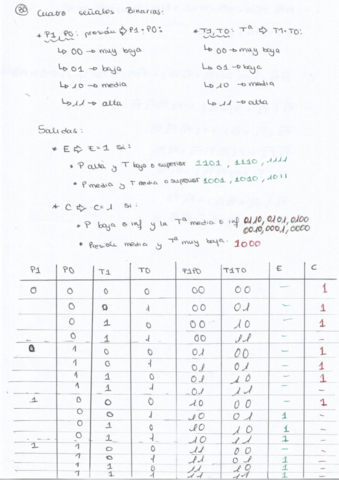 Cuatro señales Binarias:
* P1, P0: presión ⇨ P1·P0: * T1, T0: Tª ⇨ T1·T0:
↳ 00 → muy baja ↳ 00 → muy baja
↳ 01 → baja ↳ 01 → baja
↳ 10 → media ↳ 10 → media
↳ 11 → alta ↳ 11 → alta
Salidas:
* E ⇨ E=1 si:
* P alta y T baja o superior 1101, 1110, 1111
* P media y T media o superior 1001, 1010, 1011
* C ⇨ C=1 si:
* P baja o inf y la Tª media o inf 0110, 0101, 0100
0010, 0001, 0000
* Presión media y Tª muy baja: 1000
P1 P0 T1 T0 P1P0 T1T0 E C
0 0 0 0 00 00 - 1
0 0 1 00 01 - 1
0 1 0 00 10 - 1
0 1 1 00 11 - -
0 1 0 0 01 00 - 1
1 0 1 01 01 - 1
1 1 0 01 10 - 1
1 1 1 01 11 - -
1 0 0 0 10 00 - 1
0 0 1 10 01 1 -
0 1 0 10 10 1 -
0 1 1 10 11 1 -
1 1 0 0 11 00 - -
1 0 1 11 01 1 -
1 1 0 11 10 1 -
1 1 1 11 11 1 -